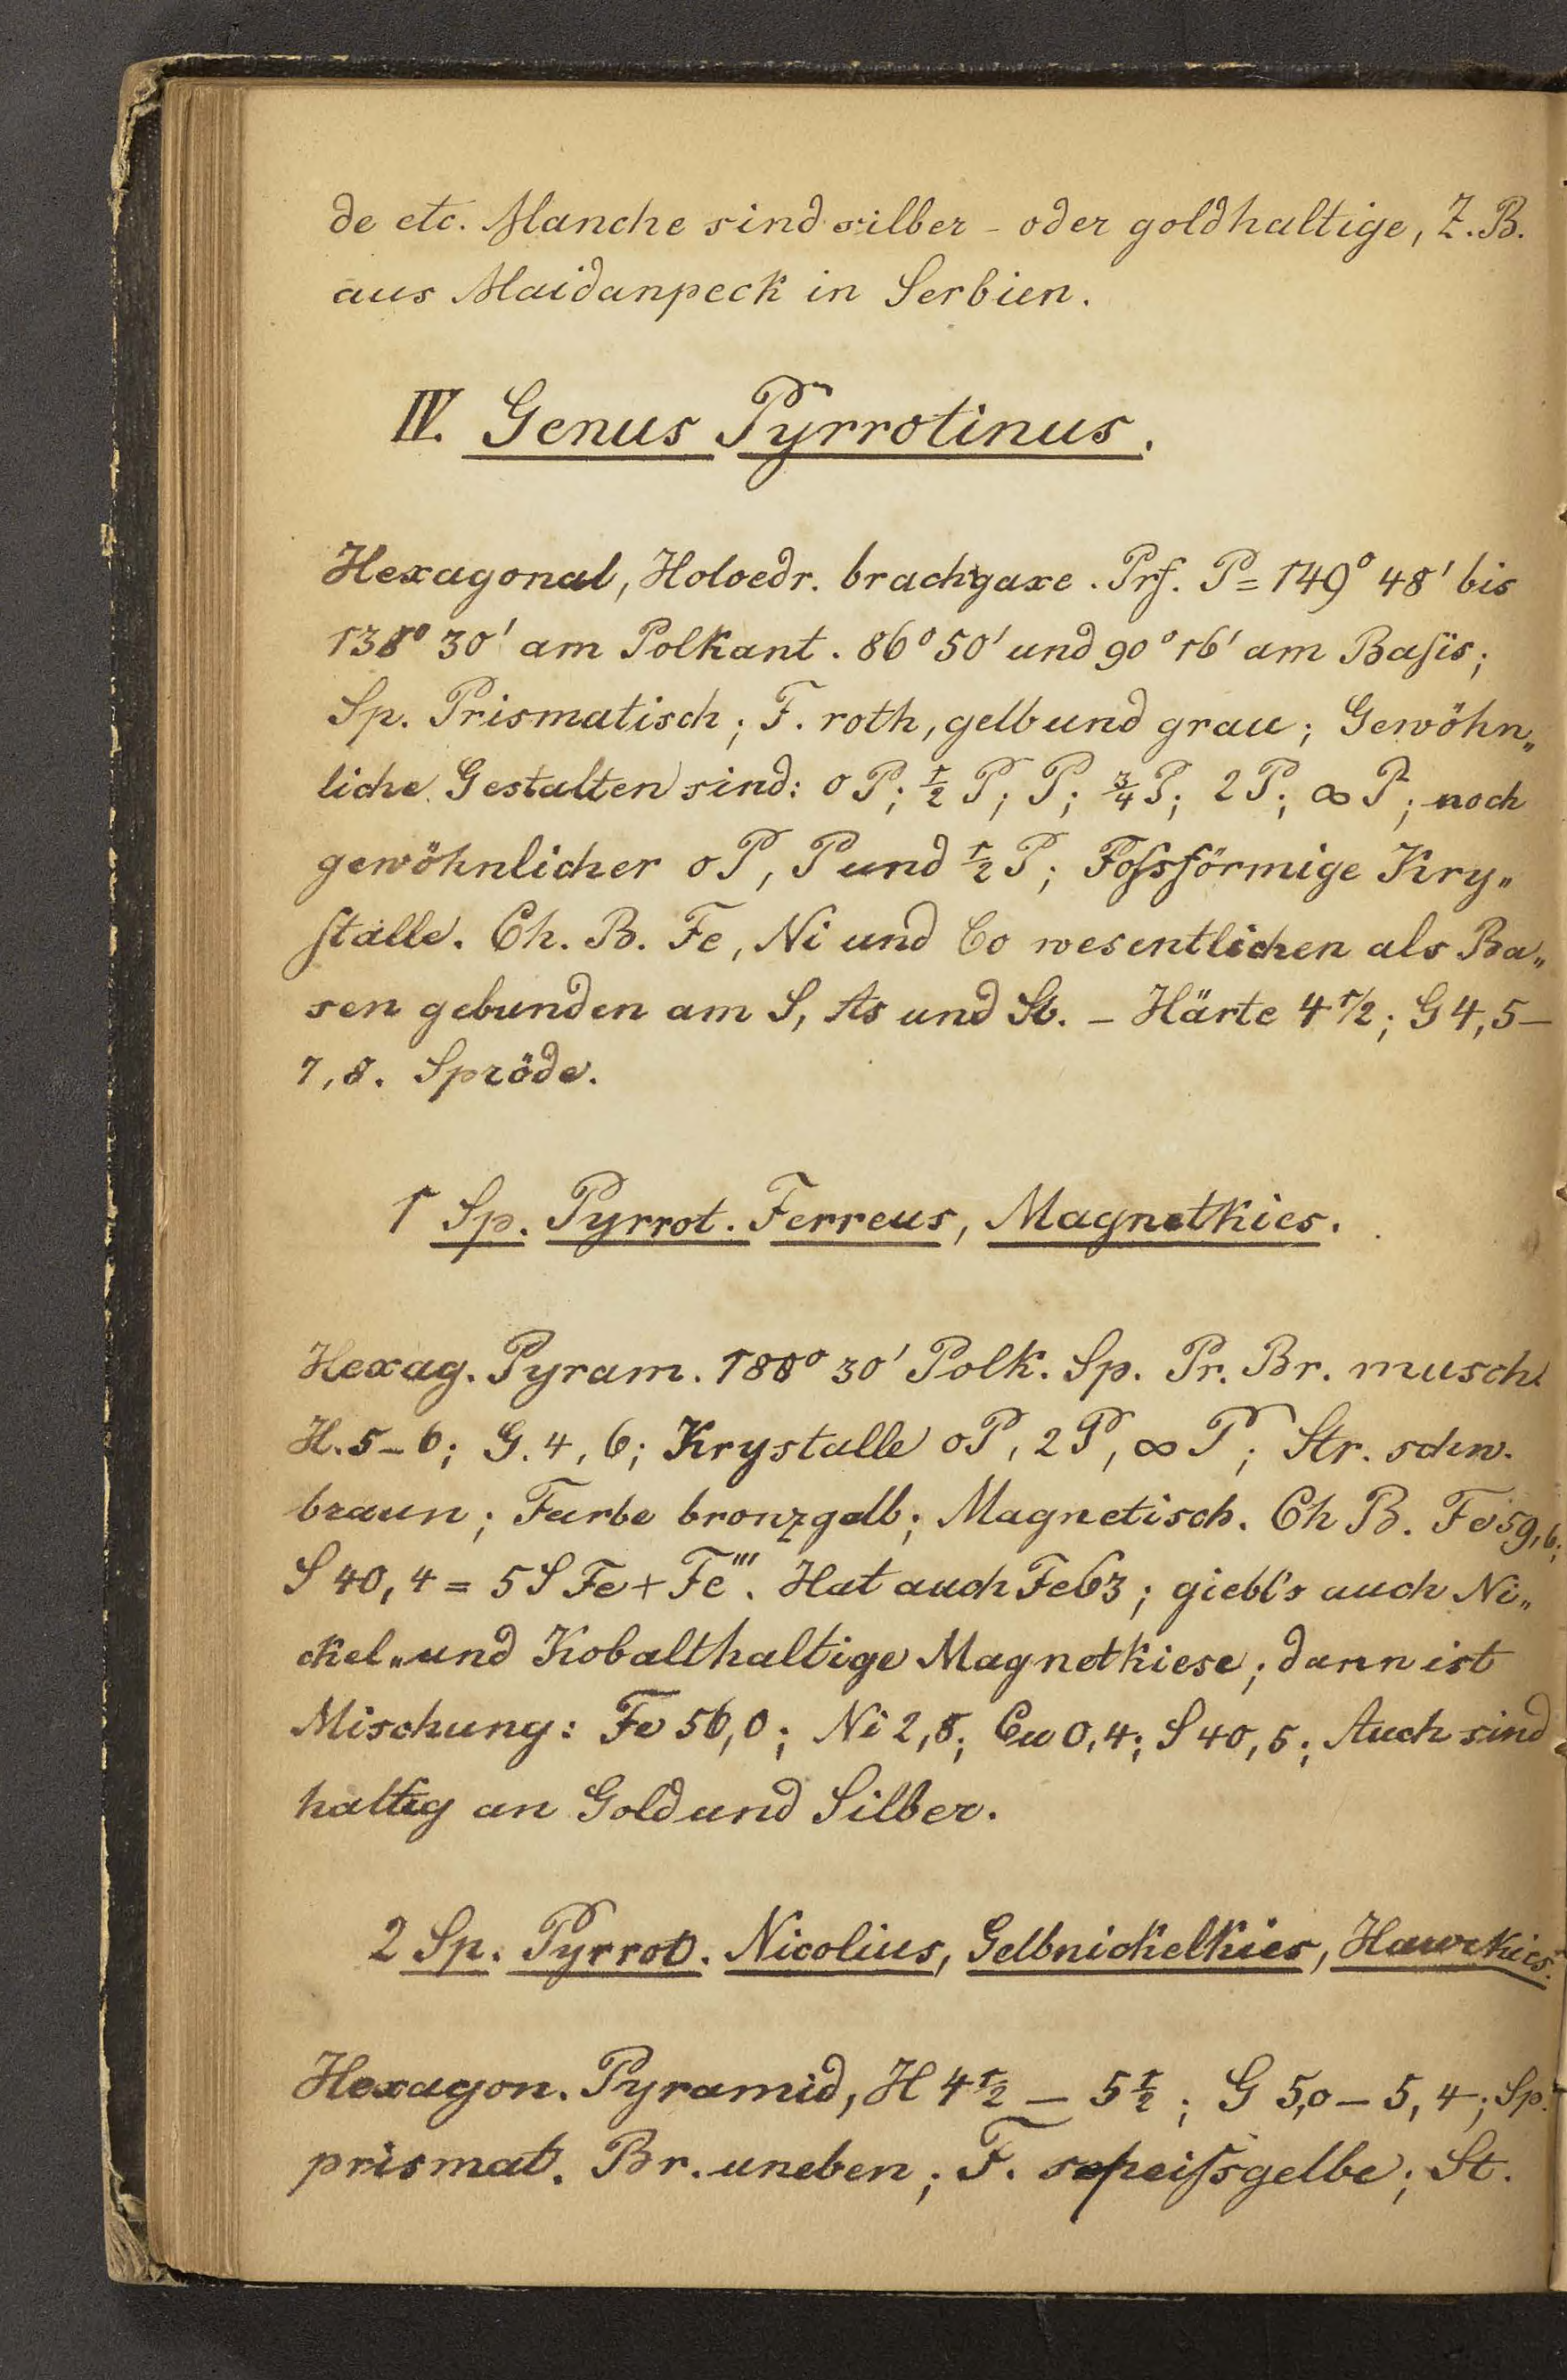 de etc. Manche sind silber - oder goldhaltige, Z. B.
aus Maidanpeck in Serbien.
IV. Genus Pyrrotinus.
Hexagonal, Holoedr. brachyaxe. Prf. P = 149° 48' bis
138° 30' am Polkant. 86° 50' und 90° 16' am Basis;
Sp. Prismatisch; F. roth, gelb und grau; Gewöhn„
liche Gestalten sind: oP; ½ P; P; ¾ P; 2P; ∞ P; noch
gewöhnlicher oP, P und ½ P; Fossförmige Kry„
stalle. Ch. B. Fe, Ni und Co wesentlichen als Ba„
sen gebunden am S, As und Sb. – Härte 4 1/2; G 4,5 –
7,8. Spröde.
1 Sp. Pyrrot. Ferreus, Magnetkies.
Hexag. Pyram. 188° 30' Polk. Sp. Pr. Br. musch.
H. 5 – 6; G. 4,6; Krystalle oP, 2P, ∞ P; Str. schw.
braun; Farbe bronzgelb; Magnetisch. Ch B. Fe 59,6;
S 40,4 = 5 S Fe + Fe'''. Hat auch Fe 63; giebt's auch Ni„
ckel„ und Kobalthaltige Magnetkiese; dann ist
Mischung: Fe 56,0; Ni 2,8; Cu 0,4; S 40,5; Auch sind
haltig an Gold und Silber.
2 Sp. Pyrrot. Nicolius, Gelbnickelkies, Haarkies.
Hexagon. Pyramid, H 4½ – 5½; G 5,0 – 5,4; Sp.
prismat. Br. uneben; F. speissgelbe; St.